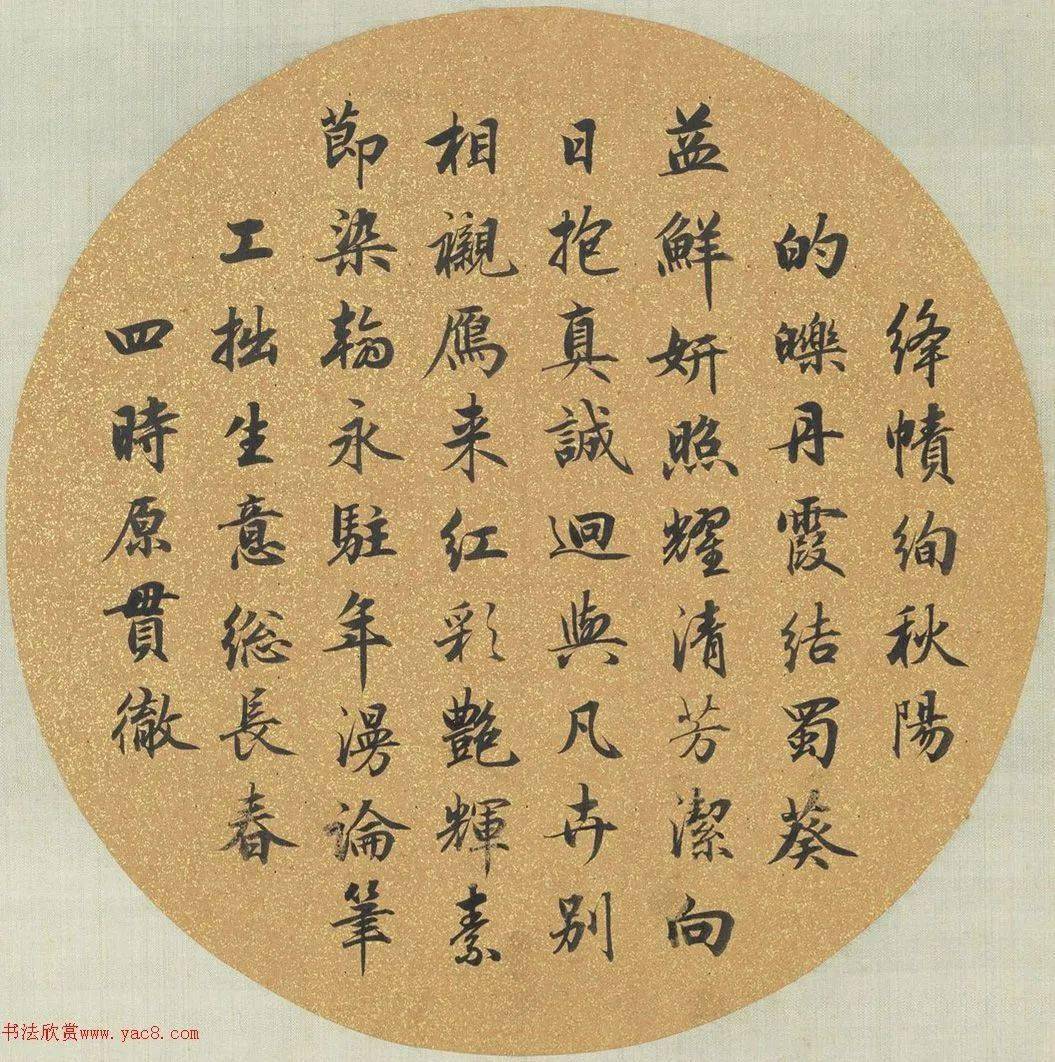 绛幘絢秋陽
的皪丹霞結蜀葵
益鮮妍照耀清芳潔向
日抱真誠迥與凡卉别
相襯雁来红彩艷輝素
節染翰永駐年漫論筆
工拙生意総長春
四時原貫徹
书法欣赏www.yac8.com